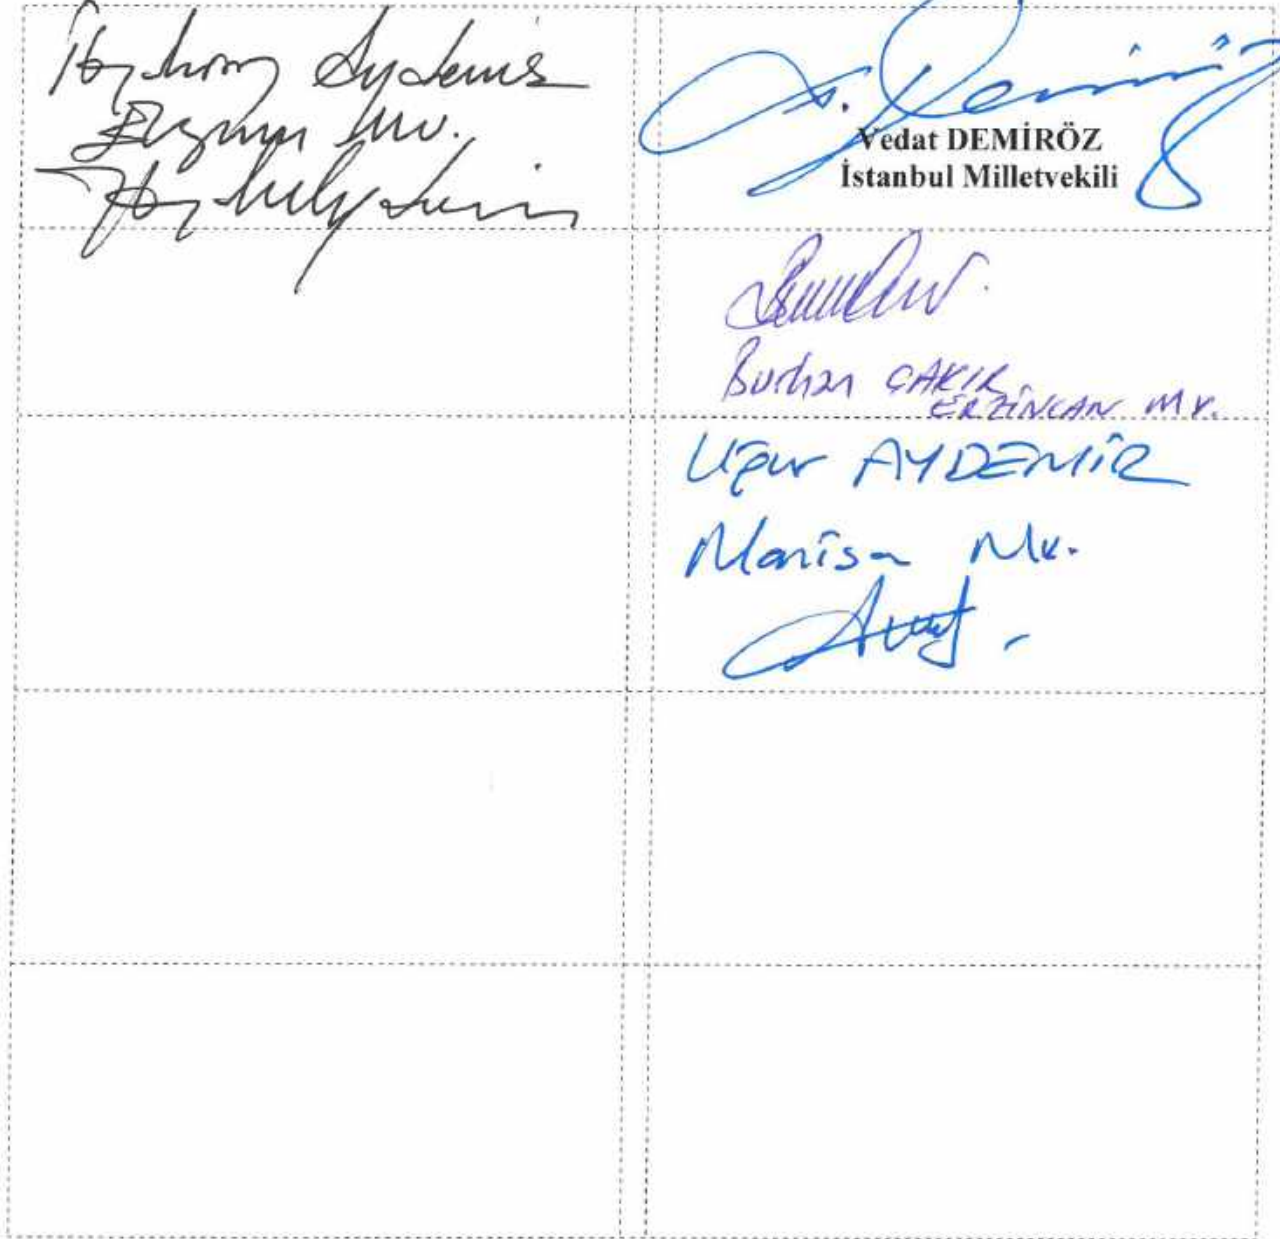 İbrahim Aydemir
Erzurum Mv.
Vedat DEMİRÖZ
İstanbul Milletvekili
Burhan ÇAKIR
ERZİNCAN MV.
Uğur AYDEMİR
Manisa Mv.